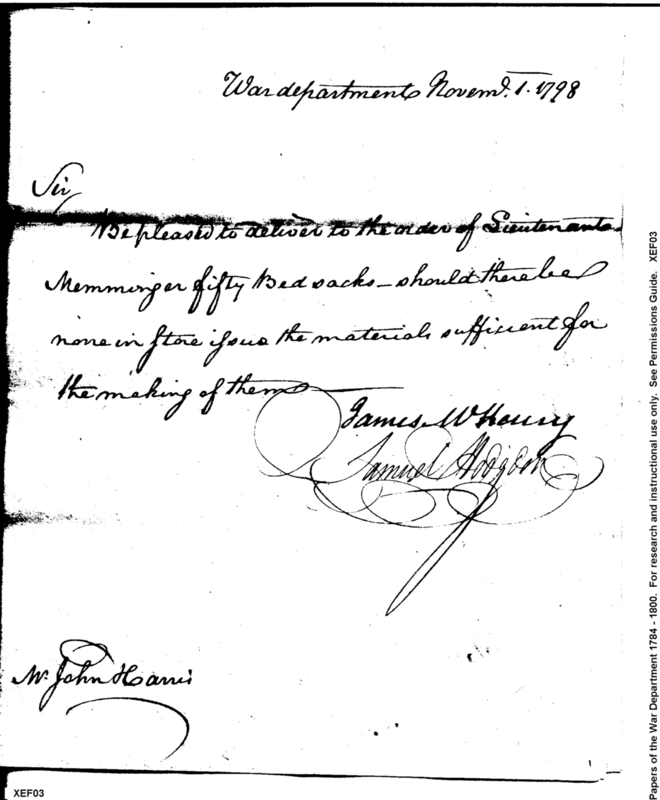 War department Novemr. 1. 1798
Sir
Be pleased to deliver to the order of Lieutenant
Memminger fifty Bed sacks - should there be
none in Store issue the materials sufficient for
the making of them
James McHenry
Samuel Hodgdon
Mr. John Harris
XEF03
Papers of the War Department 1784 - 1800. For research and instructional use only. See Permissions Guide. XEF03